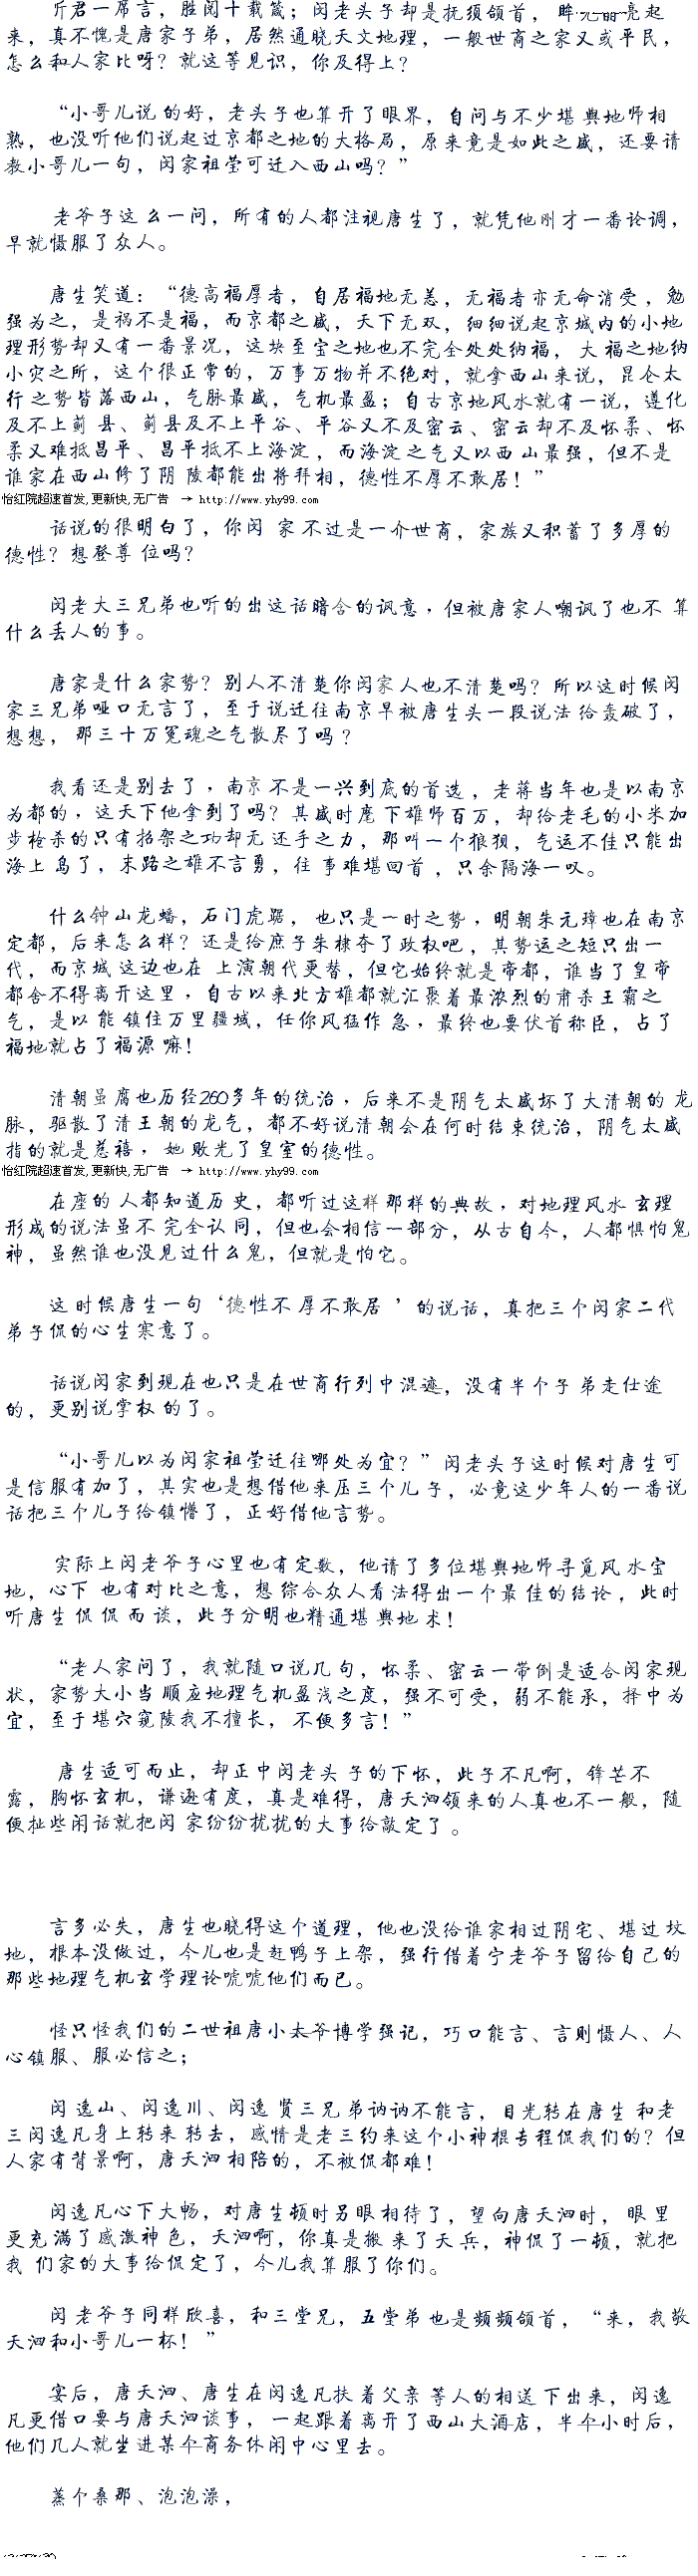 斤君一席言，胜阅十载箴；闵老头子却是抚须颌首，眸光的亮起
来，真不愧是唐家子弟，居然通晓天文地理，一般世商之家又或平民，
怎么和人家比呀？就这等见识，你及得上？
“小哥儿说的好，老头子也算开了眼界，自问与不少堪舆地师相
熟，也没听他们说起过京都之地的大格局，原来竟是如此之盛，还要请
教小哥儿一句，闵家祖莹可迁入西山吗？”
老爷子这么一问，所有的人都注视唐生了，就凭他刚才一番论调，
早就慑服了众人。
唐生笑道：“德高福厚者，自居福地无恙，无福者亦无命消受，勉
强为之，是祸不是福，而京都之盛，天下无双，细细说起京城内的小地
理形势却又有一番景况，这块至宝之地也不完全处处纳福，大福之地纳
小灾之所，这个很正常的，万事万物并不绝对，就拿西山来说，昆仑太
行之势皆落西山，气脉最盛，气机最盈；自古京地风水就有一说，遵化
及不上蓟县、蓟县及不上平谷、平谷又不及密云、密云却不及怀柔、怀
柔又难抵昌平、昌平抵不上海淀，而海淀之气又以西山最强，但不是
谁家在西山修了阴陵都能出将拜相，德性不厚不敢居！”
怡红院超速首发,更新快,无广告 → http://www.yhy99.com
话说的很明白了，你闵家不过是一介世商，家族又积蓄了多厚的
德性？想登尊位吗？
闵老大三兄弟也听的出这话暗含的讽意，但被唐家人嘲讽了也不算
什么丢人的事。
唐家是什么家势？别人不清楚你闵家人也不清楚吗？所以这时候闵
家三兄弟哑口无言了，至于说迁往南京早被唐生头一段说法给轰破了，
想想，那三十万冤魂之气散尽了吗？
我看还是别去了，南京不是一兴到底的首选，老蒋当年也是以南京
为都的，这天下他拿到了吗？其盛时麾下雄师百万，却给老毛的小米加
步枪杀的只有招架之功却无还手之力，那叫一个狼狈，气运不佳只能出
海上岛了，末路之雄不言勇，往事难堪回首，只余隔海一叹。
什么钟山龙蟠，石门虎踞，也只是一时之势，明朝朱元璋也在南京
定都，后来怎么样？还是给庶子朱棣夺了政权吧，其势运之短只出一
代，而京城这边也在上演朝代更替，但它始终就是帝都，谁当了皇帝
都舍不得离开这里，自古以来北方雄都就汇聚着最浓烈的肃杀王霸之
气，是以能镇住万里疆域，任你风猛作急，最终也要伏首称臣，占了
福地就占了福源嘛！
清朝虽腐也历经260多年的统治，后来不是阴气太盛坏了大清朝的龙
脉，驱散了清王朝的龙气，都不好说清朝会在何时结束统治，阴气太盛
指的就是慈禧，她败光了皇室的德性。
怡红院超速首发,更新快,无广告 → http://www.yhy99.com
在座的人都知道历史，都听过这样那样的典故，对地理风水玄理
形成的说法虽不完全认同，但也会相信一部分，从古自今，人都惧怕鬼
神，虽然谁也没见过什么鬼，但就是怕它。
这时候唐生一句‘德性不厚不敢居’的说话，真把三个闵家二代
弟子侃的心生寒意了。
话说闵家到现在也只是在世商行列中混迹，没有半个子弟走仕途
的，更别说掌权的了。
“小哥儿以为闵家祖莹迁往哪处为宜？”闵老头子这时候对唐生可
是信服有加了，其实也是想借他来压三个儿子，必竟这少年人的一番说
话把三个儿子给镇懵了，正好借他言势。
实际上闵老爷子心里也有定数，他请了多位堪舆地师寻觅风水宝
地，心下也有对比之意，想综合众人看法得出一个最佳的结论，此时
听唐生侃侃而谈，此子分明也精通堪舆地术！
“老人家问了，我就随口说几句，怀柔、密云一带倒是适合闵家现
状，家势大小当顺应地理气机盈浅之度，强不可受，弱不能承，择中为
宜，至于堪穴窥陵我不擅长，不便多言！”
唐生适可而止，却正中闵老头子的下怀，此子不凡啊，锋芒不
露，胸怀玄机，谦逊有度，真是难得，唐天泗领来的人真也不一般，随
便扯些闲话就把闵家纷纷扰扰的大事给敲定了。
言多必失，唐生也晓得这个道理，他也没给谁家相过阴宅、堪过坟
地，根本没做过，今儿也是赶鸭子上架，强行借着宁老爷子留给自己的
那些地理气机玄学理论唬唬他们而已。
怪只怪我们的二世祖唐小太爷博学强记，巧口能言、言则慑人、人
心镇服、服必信之；
闵逸山、闵逸川、闵逸贤三兄弟讷讷不能言，目光转在唐生和老
三闵逸凡身上转来转去，感情是老三约来这个小神棍专程侃我们的？但
人家有背景啊，唐天泗相陪的，不被侃都难！
闵逸凡心下大畅，对唐生顿时另眼相待了，望向唐天泗时，眼里
更充满了感激神色，天泗啊，你真是搬来了天兵，神侃了一顿，就把
我们家的大事给侃定了，今儿我算服了你们。
闵老爷子同样欣喜，和三堂兄，五堂弟也是频频颌首，“来，我敬
天泗和小哥儿一杯！”
宴后，唐天泗、唐生在闵逸凡扶着父亲等人的相送下出来，闵逸
凡更借口要与唐天泗谈事，一起跟着离开了西山大酒店，半个小时后，
他们几人就坐进某个商务休闲中心里去。
蒸个桑那、泡泡澡，